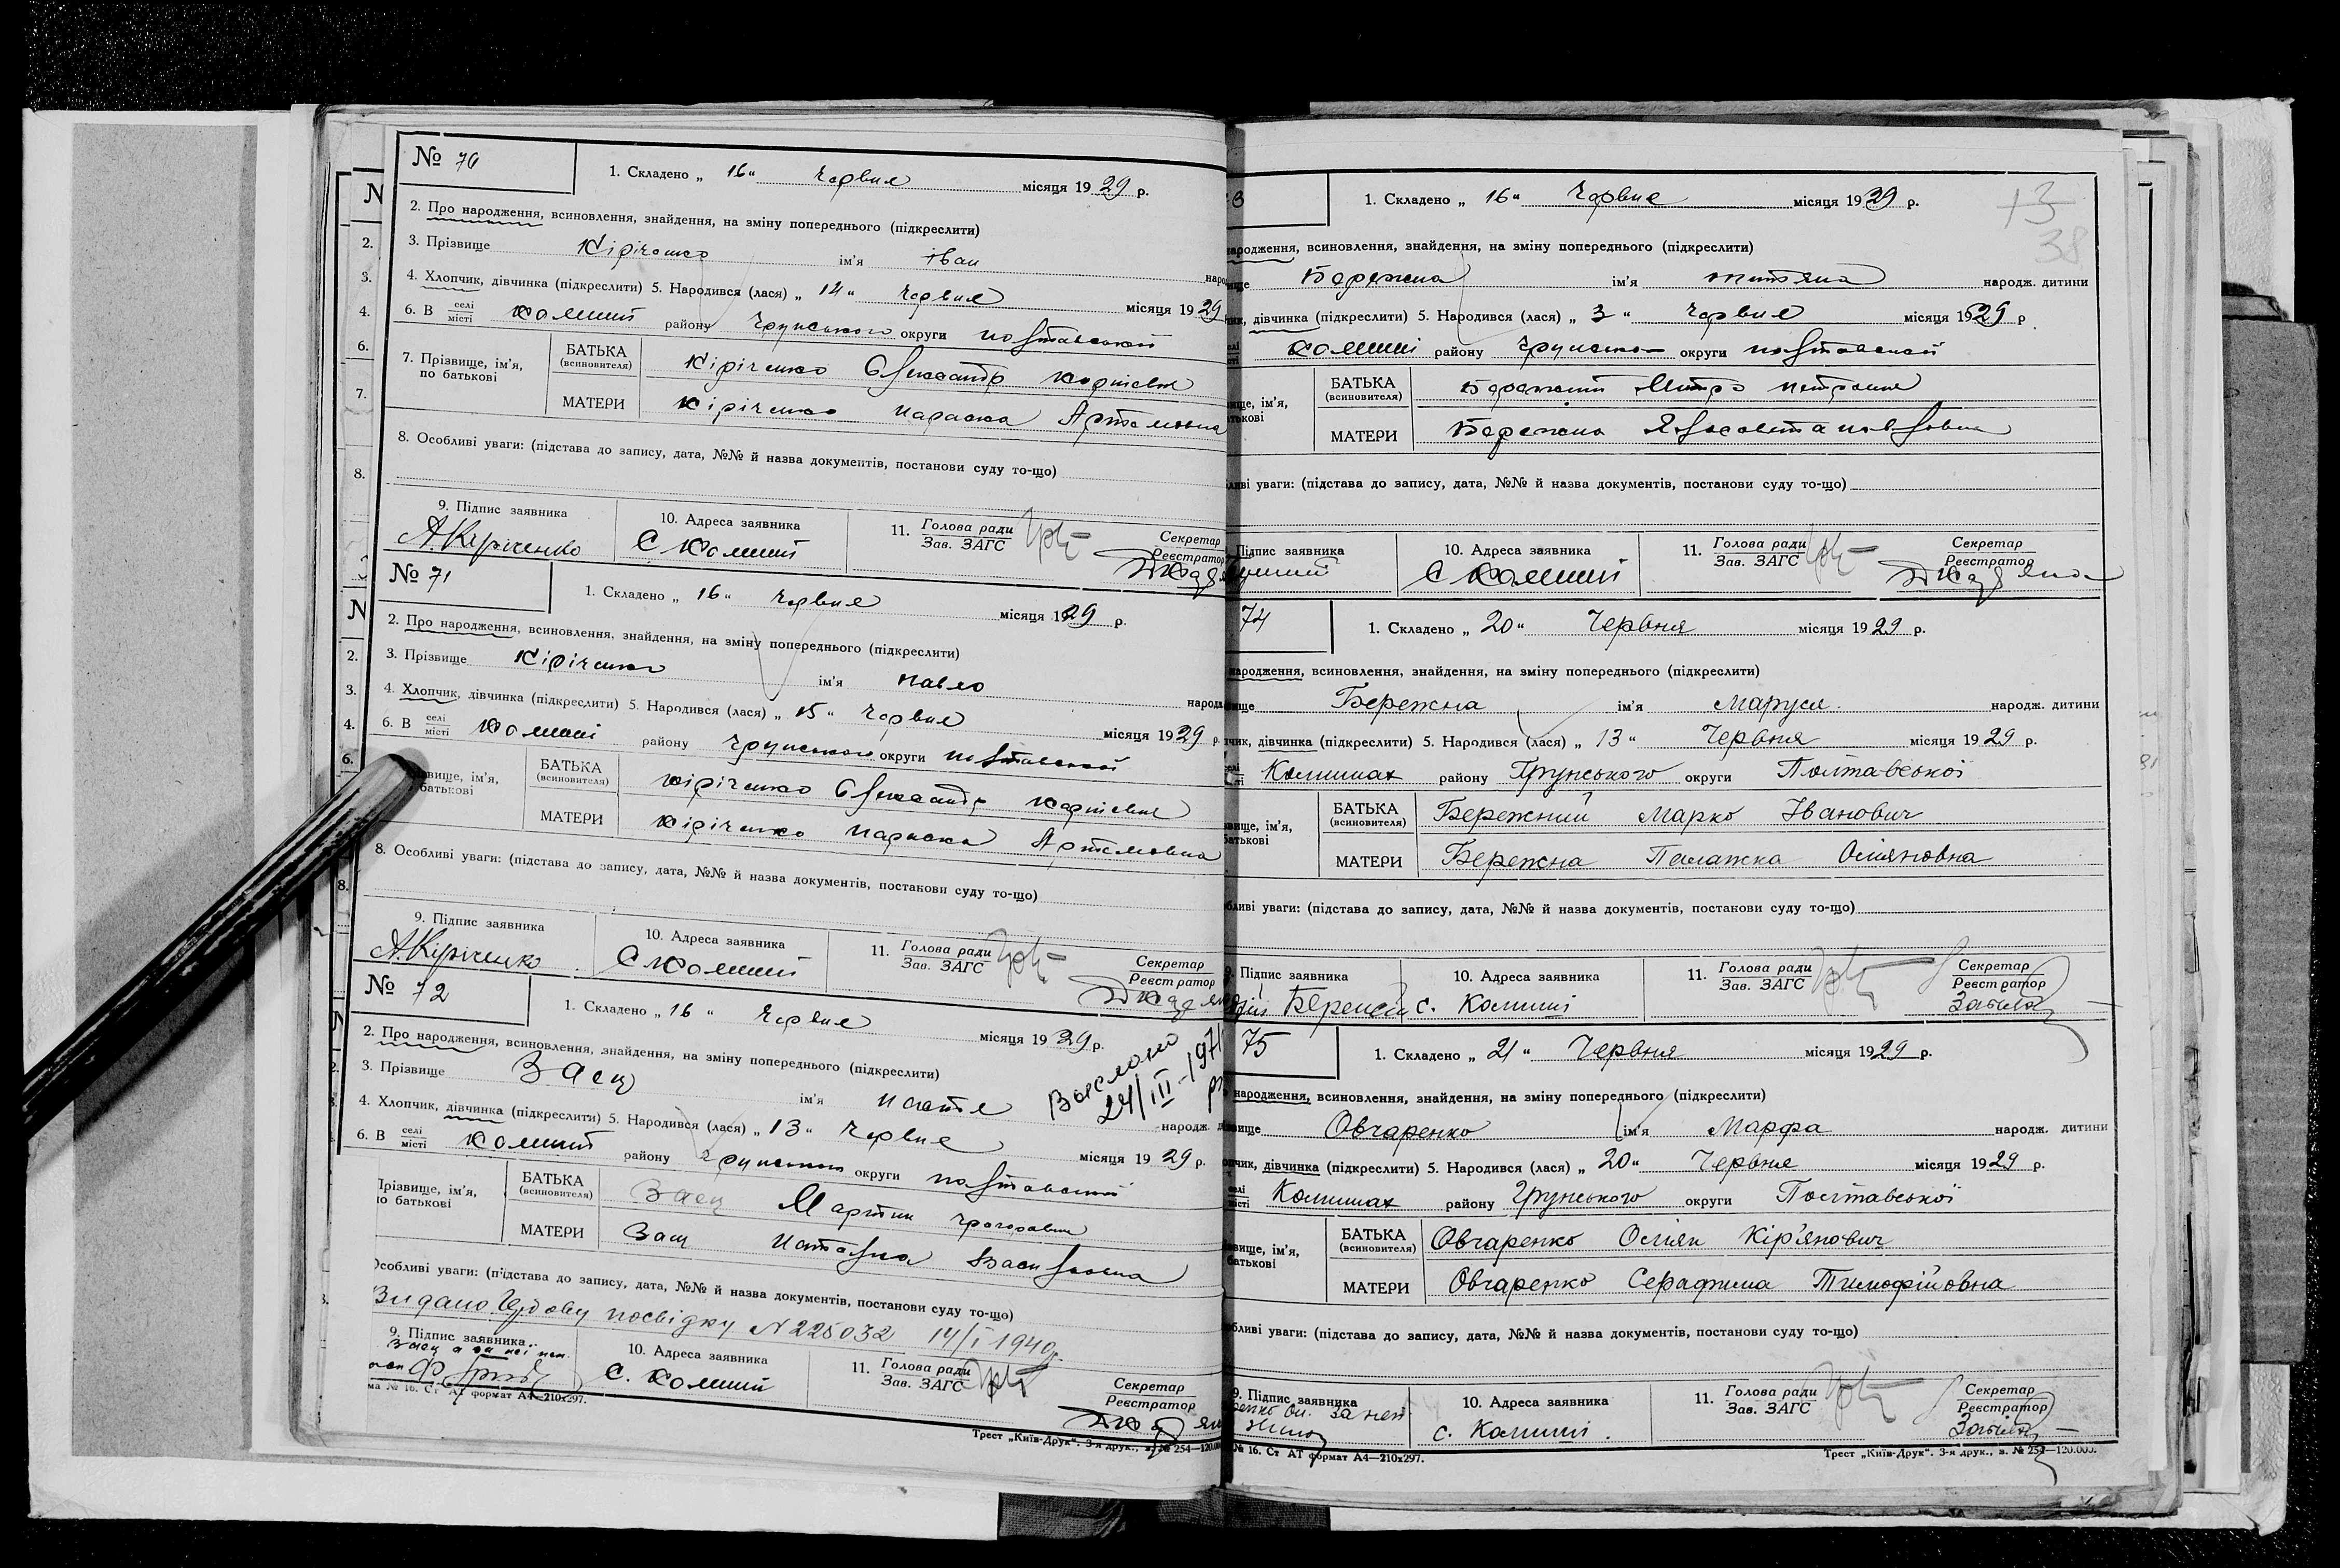 № 70
1. Складено „ 16 “ Червня місяця 19 29 р.
2. Про народження, всиновлення, знайдення, на зміну попереднього (підкреслити)
3. Прізвище Кіріченко ім'я Іван
4. Хлопчик, дівчинка (підкреслити) 5. Народився (лася) „ 14 “ Червня місяця 19 29
6. В селі місті Комиші району Грунського округи Полтавської
7. Прізвище, ім'я, по батькові
БАТЬКА (всиновителя) Кіріченко Олександр
МАТЕРИ Кіріченко Параска Артемовна
8. Особливі уваги: (підстава до запису, дата, №№ й назва документів, постанови суду то-що)
9. Підпис заявника 10. Адреса заявника 11. Голова ради Зав. ЗАГС Секретар Реєстратор
А. Кіріченко С Комиші
№ 71
1. Складено „ 16 “ Червня місяця 19 29 р.
2. Про народження, всиновлення, знайдення, на зміну попереднього (підкреслити)
3. Прізвище Кіріченко ім'я Павло
4. Хлопчик, дівчинка (підкреслити) 5. Народився (лася) „ 15 “ Червня місяця 19 29 р.
6. В селі місті Комиші району Грунського округи Полтавської
вище, ім'я, батькові
БАТЬКА (всиновителя) Кіріченко Олександр
МАТЕРИ Кіріченко Параска Артемовна
8. Особливі уваги: (підстава до запису, дата, №№ й назва документів, постанови суду то-що)
9. Підпис заявника 10. Адреса заявника 11. Голова ради Зав. ЗАГС Секретар Реєстратор
А. Кіріченко С Комиші
№ 72
1. Складено „ 16 “ Червня місяця 19 29 р.
2. Про народження, всиновлення, знайдення, на зміну попереднього (підкреслити)
Вислано 24/III-1971 р
3. Прізвище Заєц ім'я
4. Хлопчик, дівчинка (підкреслити) 5. Народився (лася) „ 13 “ Червня місяця 19 29 р.
6. В селі місті Комиші району Грунського округи Полтавської
Прізвище, ім'я, по батькові
БАТЬКА (всиновителя) Заєц Мартин Григорович
МАТЕРИ Заєц Наталка Василівна
Особливі уваги: (підстава до запису, дата, №№ й назва документів, постанови суду то-що)
Видано Чудову посвідку N 225032 14/I 1940р.
9. Підпис заявника 10. Адреса заявника 11. Голова ради Зав. ЗАГС Секретар Реєстратор
С. Комиші
ма № 16. Ст АТ формат А4—210x297.
Трест „Київ-Друк“. 3-я друк., з. № 254—120.000
13
38
1. Складено „ 16 “ Червня місяця 19 29 р.
народження, всиновлення, знайдення, на зміну попереднього (підкреслити)
Бережна ім'я Титяна народж. дитини
дівчинка (підкреслити) 5. Народився (лася) „ 3 “ Червня місяця 19 29 р
Комиші району Грунсько округи Полтавської
вище, ім'я, батькові
БАТЬКА (всиновителя) Бережний Митро Петрович
МАТЕРИ Бережна Павловна
уваги: (підстава до запису, дата, №№ й назва документів, постанови суду то-що)
Підпис заявника 10. Адреса заявника 11. Голова ради Зав. ЗАГС Секретар Реєстратор
С Комиші
74
1. Складено „ 20 “ Червня місяця 19 29 р.
народження, всиновлення, знайдення, на зміну попереднього (підкреслити)
Бережна ім'я Маруся народж. дитини
дівчинка (підкреслити) 5. Народився (лася) „ 13 “ Червня місяця 19 29 р.
Комишах району Грунського округи Полтавської
вище, ім'я, батькові
БАТЬКА (всиновителя) Бережний Марко Іванович
МАТЕРИ Бережна Палажка Осіяновна
уваги: (підстава до запису, дата, №№ й назва документів, постанови суду то-що)
9. Підпис заявника 10. Адреса заявника 11. Голова ради Зав. ЗАГС Секретар Реєстратор
с. Комиші Забіла
75
1. Складено „ 21 “ Червня місяця 19 29 р.
народження, всиновлення, знайдення, на зміну попереднього (підкреслити)
Овчаренко ім'я Марфа народж. дитини
дівчинка (підкреслити) 5. Народився (лася) „ 20 “ Червня місяця 19 29 р.
Комишах району Грунського округи Полтавської
вище, ім'я, батькові
БАТЬКА (всиновителя) Овчаренко Осіян Кір'янович
МАТЕРИ Овчаренко Серафима Тимофіївна
уваги: (підстава до запису, дата, №№ й назва документів, постанови суду то-що)
9. Підпис заявника 10. Адреса заявника 11. Голова ради Зав. ЗАГС Секретар Реєстратор
с. Комиші. Забіла
№ 16. Ст АТ формат А4—210x297.
Трест „Київ-Друк“. 3-я друк., з. № 254—120.000.